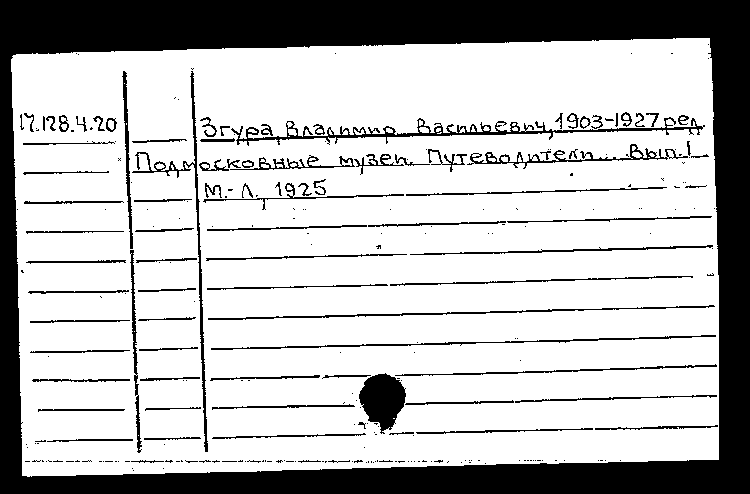 17.128.4.20 Згура, Владимир Васильевич, 1903-1927 ред.
Подмосковные музеи. Путеводители... Вып.1
М.-Л., 1925